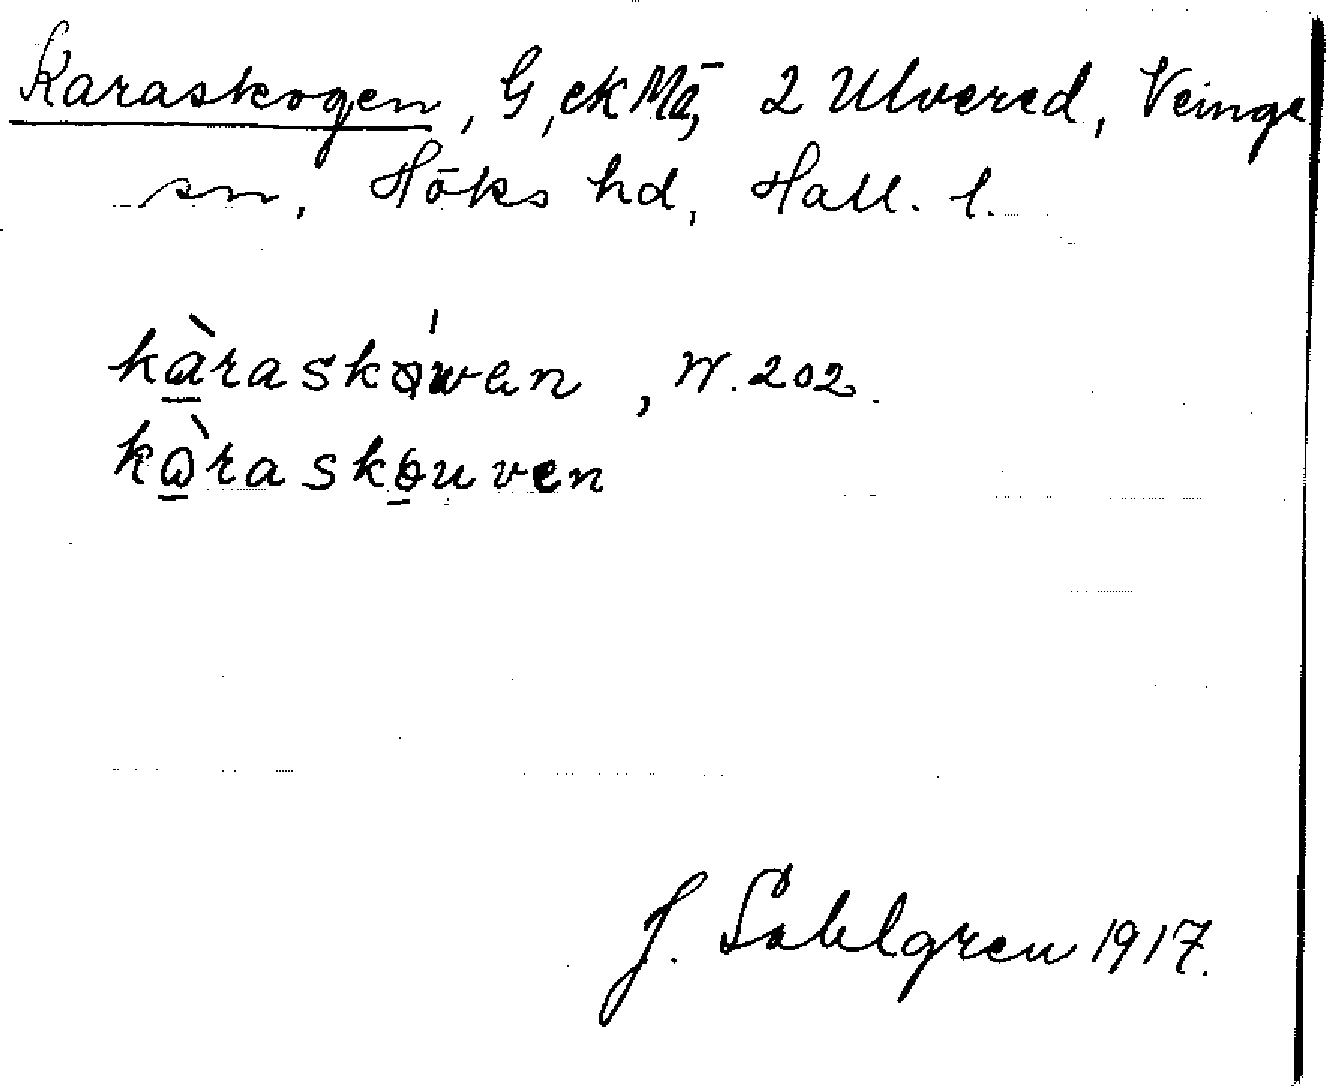 Karaskogen, G, ek Mä, 2 Ulvered, Veinge
sn, Höks hd, Hall. l.
kàraskówen, W. 202.
kàraskouven
J. Sahlgren 1917.